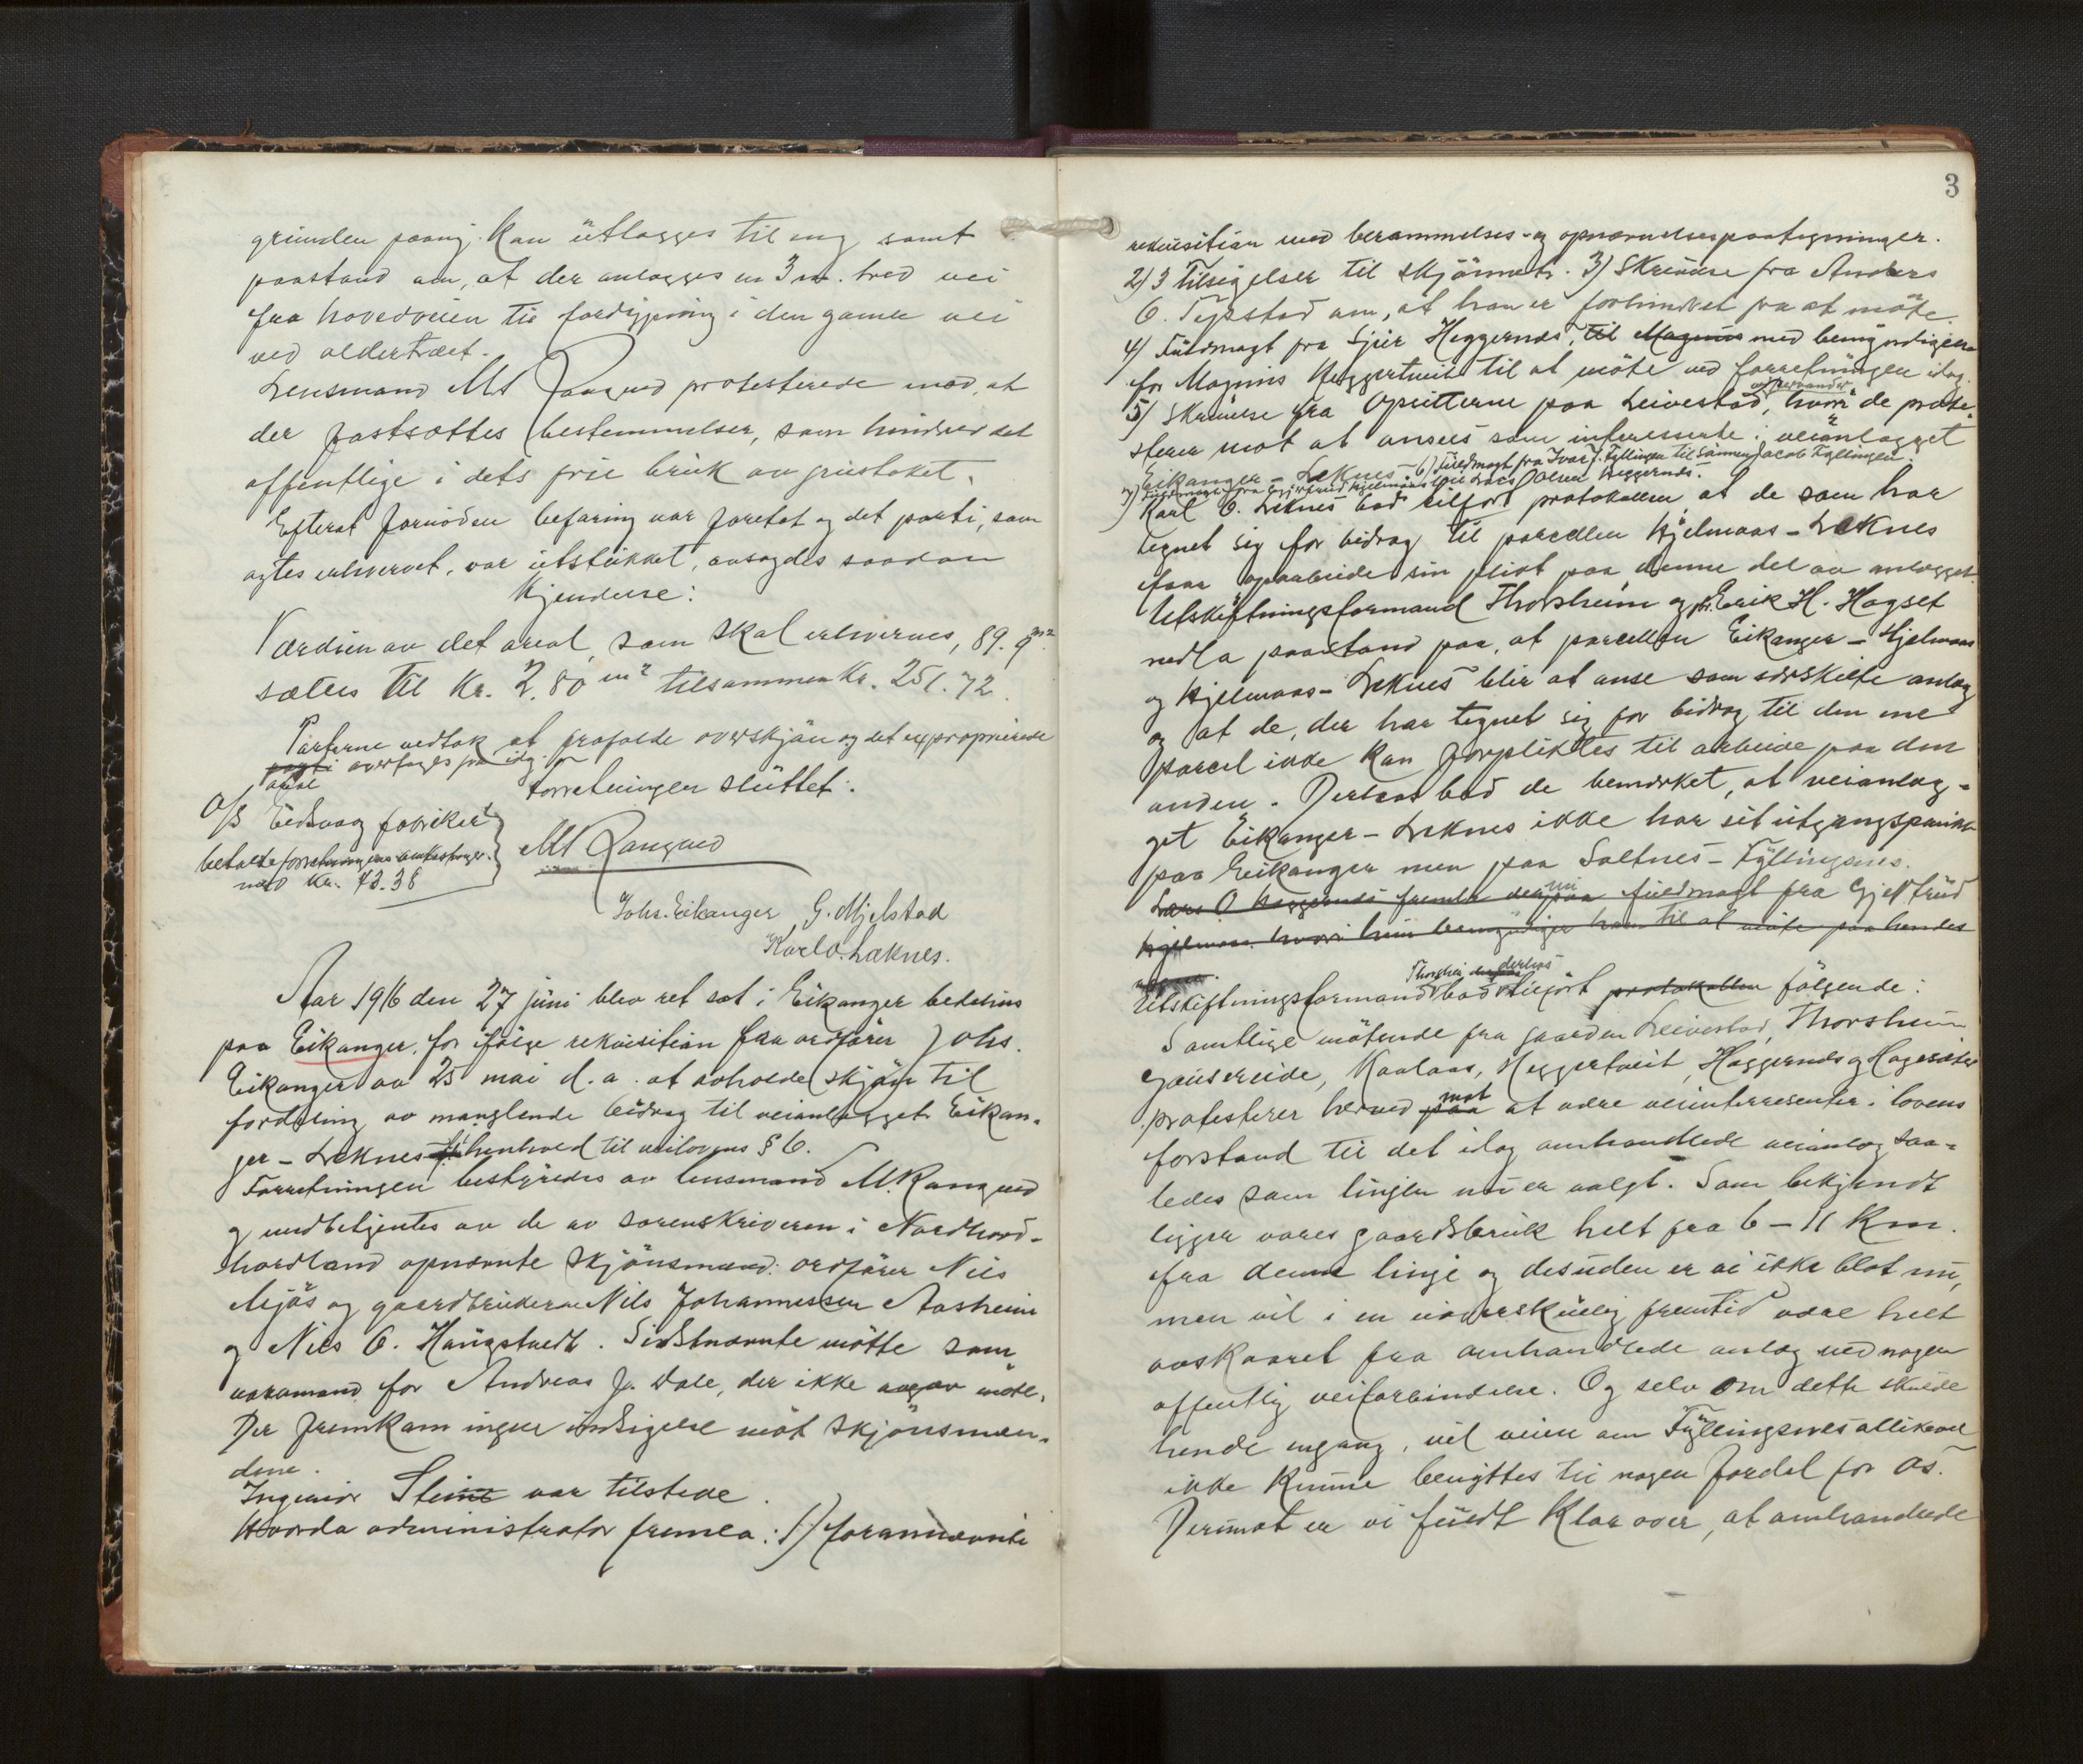 grunden paany kan utlægges til eng samt
paastand om, at der anlægges en 3 m. bred vei
fra hovedveien til fordypning i den gamle vei
ved oldertræet.
Lensmand Mt Rangnød protesterede mod, at
der fastsættes bestemmelser, som hindrer det
offentlige i dets frie bruk av grustaket.
Efterat fornøden befaring var foretat og det parti, som
agtes erhvervet, var utstukket, avsagdes saadan
Kjendelse:
Værdien av det areal, som skal erhverves, 89.9 m²
sættes til kr. 2.80 m² tilsammen kr. 251.72.
Parterne vedtok at frafalde overskjøn og det exproprierede
parti overtages fra idag.
areal
Forretningen sluttet.
A/S Eidsvaag fabriker
betalte forretningens omkostninger
med kr. 73.38
Mt Rangnød
Johs. Eikanger G. Mjelstad
Karl O. Læknes.
Aar 1916 den 27 juni blev ret sat i Eikanger bedehus
paa Eikanger, for ifølge rekvisition fra ordfører Johs.
Eikanger av 25 mai d.a. at avholde skjøn til
fordeling av manglende bidrag til veianlægget Eikan-
ger – Leknes i henhold til veilovens § 6.
Forretningen bestyredes av lensmand M. Rangnød
og medbetjentes av de av sorenskriveren i Nordhord-
hordland opnævnte skjønsmænd: ordfører Nils
Mjøs og gaardbrukerne Nils Johannessen Aasheim
og Nils O. Haugstvedt. Sidstnævnte møtte som
varamand for Andreas J. Dale, der ikke møtte.
Der fremkom ingen indsigelse mot skjønsmæn-
dene.
Ingeniør Stein var tilstede.
administrator fremla: 1) forannævnte
3
rekvisition med berammelses- og opnævnelsespaategninger.
2) 3 tilsigelser til skjønnets. 3) Skrivelse fra Anders
O. Tepstad om, at han er forhindret fra at møte.
4) Fuldmagt fra Sjur Heggernæs, til Magnus med bemyndigelse
for Magnus Heggertveit til at møte ved forretningen idag.
5) Skrivelse fra Opsitterne paa Leivestad, hvori de prote-
sterer mot at ansees som interesserte i veianlægget
Eikanger – Leknes – 6) Fuldmagt fra Ivar J. Fyllingen til sønnen Jacob Fyllingen.
7) Fuldmagt fra Gjertrud Hjelmaas til Lars Olsen Heggernes.
Karl O. Leknes bad tilført protokollen at de som har
tegnet sig for bidrag til parcellen Hjelmaas – Leknes
faar oparbeide sin pligt paa denne del av anlægget.
Utskiftningsformand Thorsheim og Erik H. Hagset
nedla paastand paa, at parcellen Eikanger – Hjelmaas
og Hjelmaas – Leknes blir at anse som særskilte anlæg
og at de, der har tegnet sig for bidrag til den ene
parcel ikke kan forpliktes til arbeide paa den
anden. Derhos bad de bemerket, at veianlæg-
get Eikanger – Leknes ikke har sit utgangspunkt
paa Eikanger men paa Saltnes – Fyllingsnes.
Lars O Heggernes fremla fuldmagt fra Gjertrud
Hjelmaas hvori hun bemyndiger ham til at møte paa hendes
Utskiftningsformand Thorsheim bad derhos tilført protokollen følgende:
Samtlige møtende fra gaarden Leivestad, Thorsheim
Gausereide, Kaalaas, Heggertveit, Heggernes og Hageseter
protesterer herved mot at være veiinteressenter i lovens
forstand til det idag omhandlede veianlæg saa-
ledes som linjen nu er valgt. Som bekjendt
ligger vores gaardsbruk helt fra 6 – 11 km.
fra denne linje og desuden er vi ikke blot nu,
men vil i en uoverskuelig fremtid være helt
avskaaret fra omhandlede anlæg ved nogen
offentlig veiforbindelse. Og selv om dette skulde
hende engang, vil veien om Fyllingsnes allikevel
ikke kunne benyttes til nogen fordel for os.
Derimot er vi fuldt klar over, at omhandlede